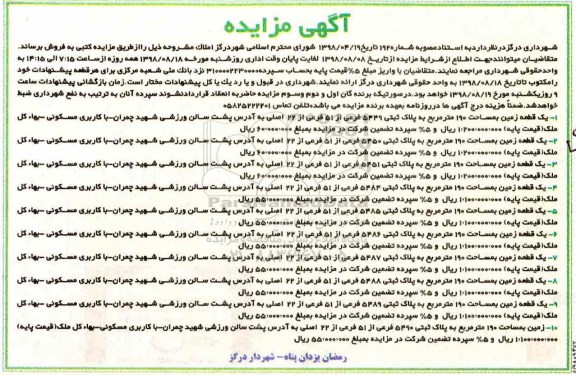 آگهی مزایده
شهرداری درگز در نظر دارد به استناد مصوبه شماره ۱۹۲۰ تاریخ ۱۳۹۸/۰۴/۱۹ شورای محترم اسلامی شهر درگز املاک مشروحه ذیل را از طریق مزایده کتبی به فروش برساند.
متقاضیان میتوانند جهت اطلاع از شرایط مزایده از تاریخ ۱۳۹۸/۰۸/۰۸ لغایت پایان وقت اداری روز شنبه مورخه ۱۳۹۸/۰۸/۱۸ همه روزه از ساعت ۷:۱۵ الی ۱۴:۱۵ به
واحد حقوقی شهرداری مراجعه نمایند. متقاضیان با واریز مبلغ ۵% قیمت پایه بحساب سپرده نزد بانک ملی شعبه مرکزی برای هر قطعه پیشنهادات خود
را مکتوب تا تاریخ ۱۳۹۸/۰۸/۱۸ به واحد حقوقی شهرداری درگز ارائه نمایند. شهرداری در قبول و یا رد یک یا کل پیشنهادات مختار است. زمان بازگشایی پیشنهادات ساعت
۹ روز یکشنبه مورخ ۱۳۹۸/۰۸/۱۹ خواهد بود. در صورتیکه برنده گان اول و دوم وسوم مزایده حاضر به انعقاد قرارداد نشوند سپرده آنان به ترتیب به نفع شهرداری ضبط
خواهد شد. ضمناً هزینه درج آگهی ها در روزنامه بعهده برنده مزایده می باشد. تلفن تماس ۰۵۸۲۵۲۲۲۰۱
۱- یک قطعه زمین بمساحت ۱۹۰ مترمربع به پلاک ثبتی ۵۴۴۹ فرعی از ۵۱ فرعی از ۲۲ اصلی به آدرس پشت سالن ورزشی شهید چمران-با کاربری مسکونی -بهاء کل
ملک(قیمت پایه) ۱،۲۰۰،۰۰۰،۰۰۰ ریال و ۵% سپرده تضمین شرکت در مزایده بمبلغ ۶۰،۰۰۰،۰۰۰ ریال
۲- یک قطعه زمین بمساحت ۱۹۰ مترمربع به پلاک ثبتی ۵۴۵۰ فرعی از ۵۱ فرعی از ۲۲ اصلی به آدرس پشت سالن ورزشی شهید چمران-با کاربری مسکونی -بهاء کل
ملک(قیمت پایه) ۱،۲۰۰،۰۰۰،۰۰۰ ریال و ۵% سپرده تضمین شرکت در مزایده بمبلغ ۶۰،۰۰۰،۰۰۰ ریال
۳- یک قطعه زمین بمساحت ۱۹۰ مترمربع به پلاک ثبتی ۵۴۵۱ فرعی از ۵۱ فرعی از ۲۲ اصلی به آدرس پشت سالن ورزشی شهید چمران-با کاربری مسکونی -بهاء کل
ملک(قیمت پایه) ۱،۲۰۰،۰۰۰،۰۰۰ ریال و ۵% سپرده تضمین شرکت در مزایده بمبلغ ۶۰،۰۰۰،۰۰۰ ریال
۴- یک قطعه زمین بمساحت ۱۹۰ مترمربع به پلاک ثبتی ۵۴۸۴ فرعی از ۵۱ فرعی از ۲۲ اصلی به آدرس پشت سالن ورزشی شهید چمران-با کاربری مسکونی -بهاء کل
ملک(قیمت پایه) ۱،۱۰۰،۰۰۰،۰۰۰ ریال و ۵% سپرده تضمین شرکت در مزایده بمبلغ ۵۵،۰۰۰،۰۰۰ ریال
۵- یک قطعه زمین بمساحت ۱۹۰ مترمربع به پلاک ثبتی ۵۴۸۵ فرعی از ۵۱ فرعی از ۲۲ اصلی به آدرس پشت سالن ورزشی شهید چمران-با کاربری مسکونی -بهاء کل
ملک(قیمت پایه) ۱،۱۰۰،۰۰۰،۰۰۰ ریال و ۵% سپرده تضمین شرکت در مزایده بمبلغ ۵۵،۰۰۰،۰۰۰ ریال
۶- یک قطعه زمین بمساحت ۱۹۰ مترمربع به پلاک ثبتی ۵۴۸۶ فرعی از ۵۱ فرعی از ۲۲ اصلی به آدرس پشت سالن ورزشی شهید چمران-با کاربری مسکونی -بهاء کل
ملک(قیمت پایه) ۱،۱۰۰،۰۰۰،۰۰۰ ریال و ۵% سپرده تضمین شرکت در مزایده بمبلغ ۵۵،۰۰۰،۰۰۰ ریال
۷- یک قطعه زمین بمساحت ۱۹۰ مترمربع به پلاک ثبتی ۵۴۸۷ فرعی از ۵۱ فرعی از ۲۲ اصلی به آدرس پشت سالن ورزشی شهید چمران-با کاربری مسکونی -بهاء کل
ملک(قیمت پایه) ۱،۱۰۰،۰۰۰،۰۰۰ ریال و ۵% سپرده تضمین شرکت در مزایده بمبلغ ۵۵،۰۰۰،۰۰۰ ریال
۸- یک قطعه زمین بمساحت ۱۹۰ مترمربع به پلاک ثبتی ۵۴۸۸ فرعی از ۵۱ فرعی از ۲۲ اصلی به آدرس پشت سالن ورزشی شهید چمران-با کاربری مسکونی -بهاء کل
ملک(قیمت پایه) ۱،۱۰۰،۰۰۰،۰۰۰ ریال و ۵% سپرده تضمین شرکت در مزایده بمبلغ ۵۵،۰۰۰،۰۰۰ ریال
۹- یک قطعه زمین بمساحت ۱۹۰ مترمربع به پلاک ثبتی ۵۴۸۹ فرعی از ۵۱ فرعی از ۲۲ اصلی به آدرس پشت سالن ورزشی شهید چمران-با کاربری مسکونی -بهاء کل
ملک(قیمت پایه) ۱،۱۰۰،۰۰۰،۰۰۰ ریال و ۵% سپرده تضمین شرکت در مزایده بمبلغ ۵۵،۰۰۰،۰۰۰ ریال
۱۰- زمین بمساحت ۱۹۰ مترمربع به پلاک ثبتی ۵۴۹۰ فرعی از ۵۱ فرعی از ۲۲ اصلی به آدرس پشت سالن ورزشی شهید چمران-با کاربری مسکونی-بهاء کل ملک(قیمت پایه)
۱،۱۰۰،۰۰۰،۰۰۰ ریال و ۵% سپرده تضمین شرکت در مزایده بمبلغ ۵۵،۰۰۰،۰۰۰ ریال
رمضان یزدان پناه - شهردار درگز